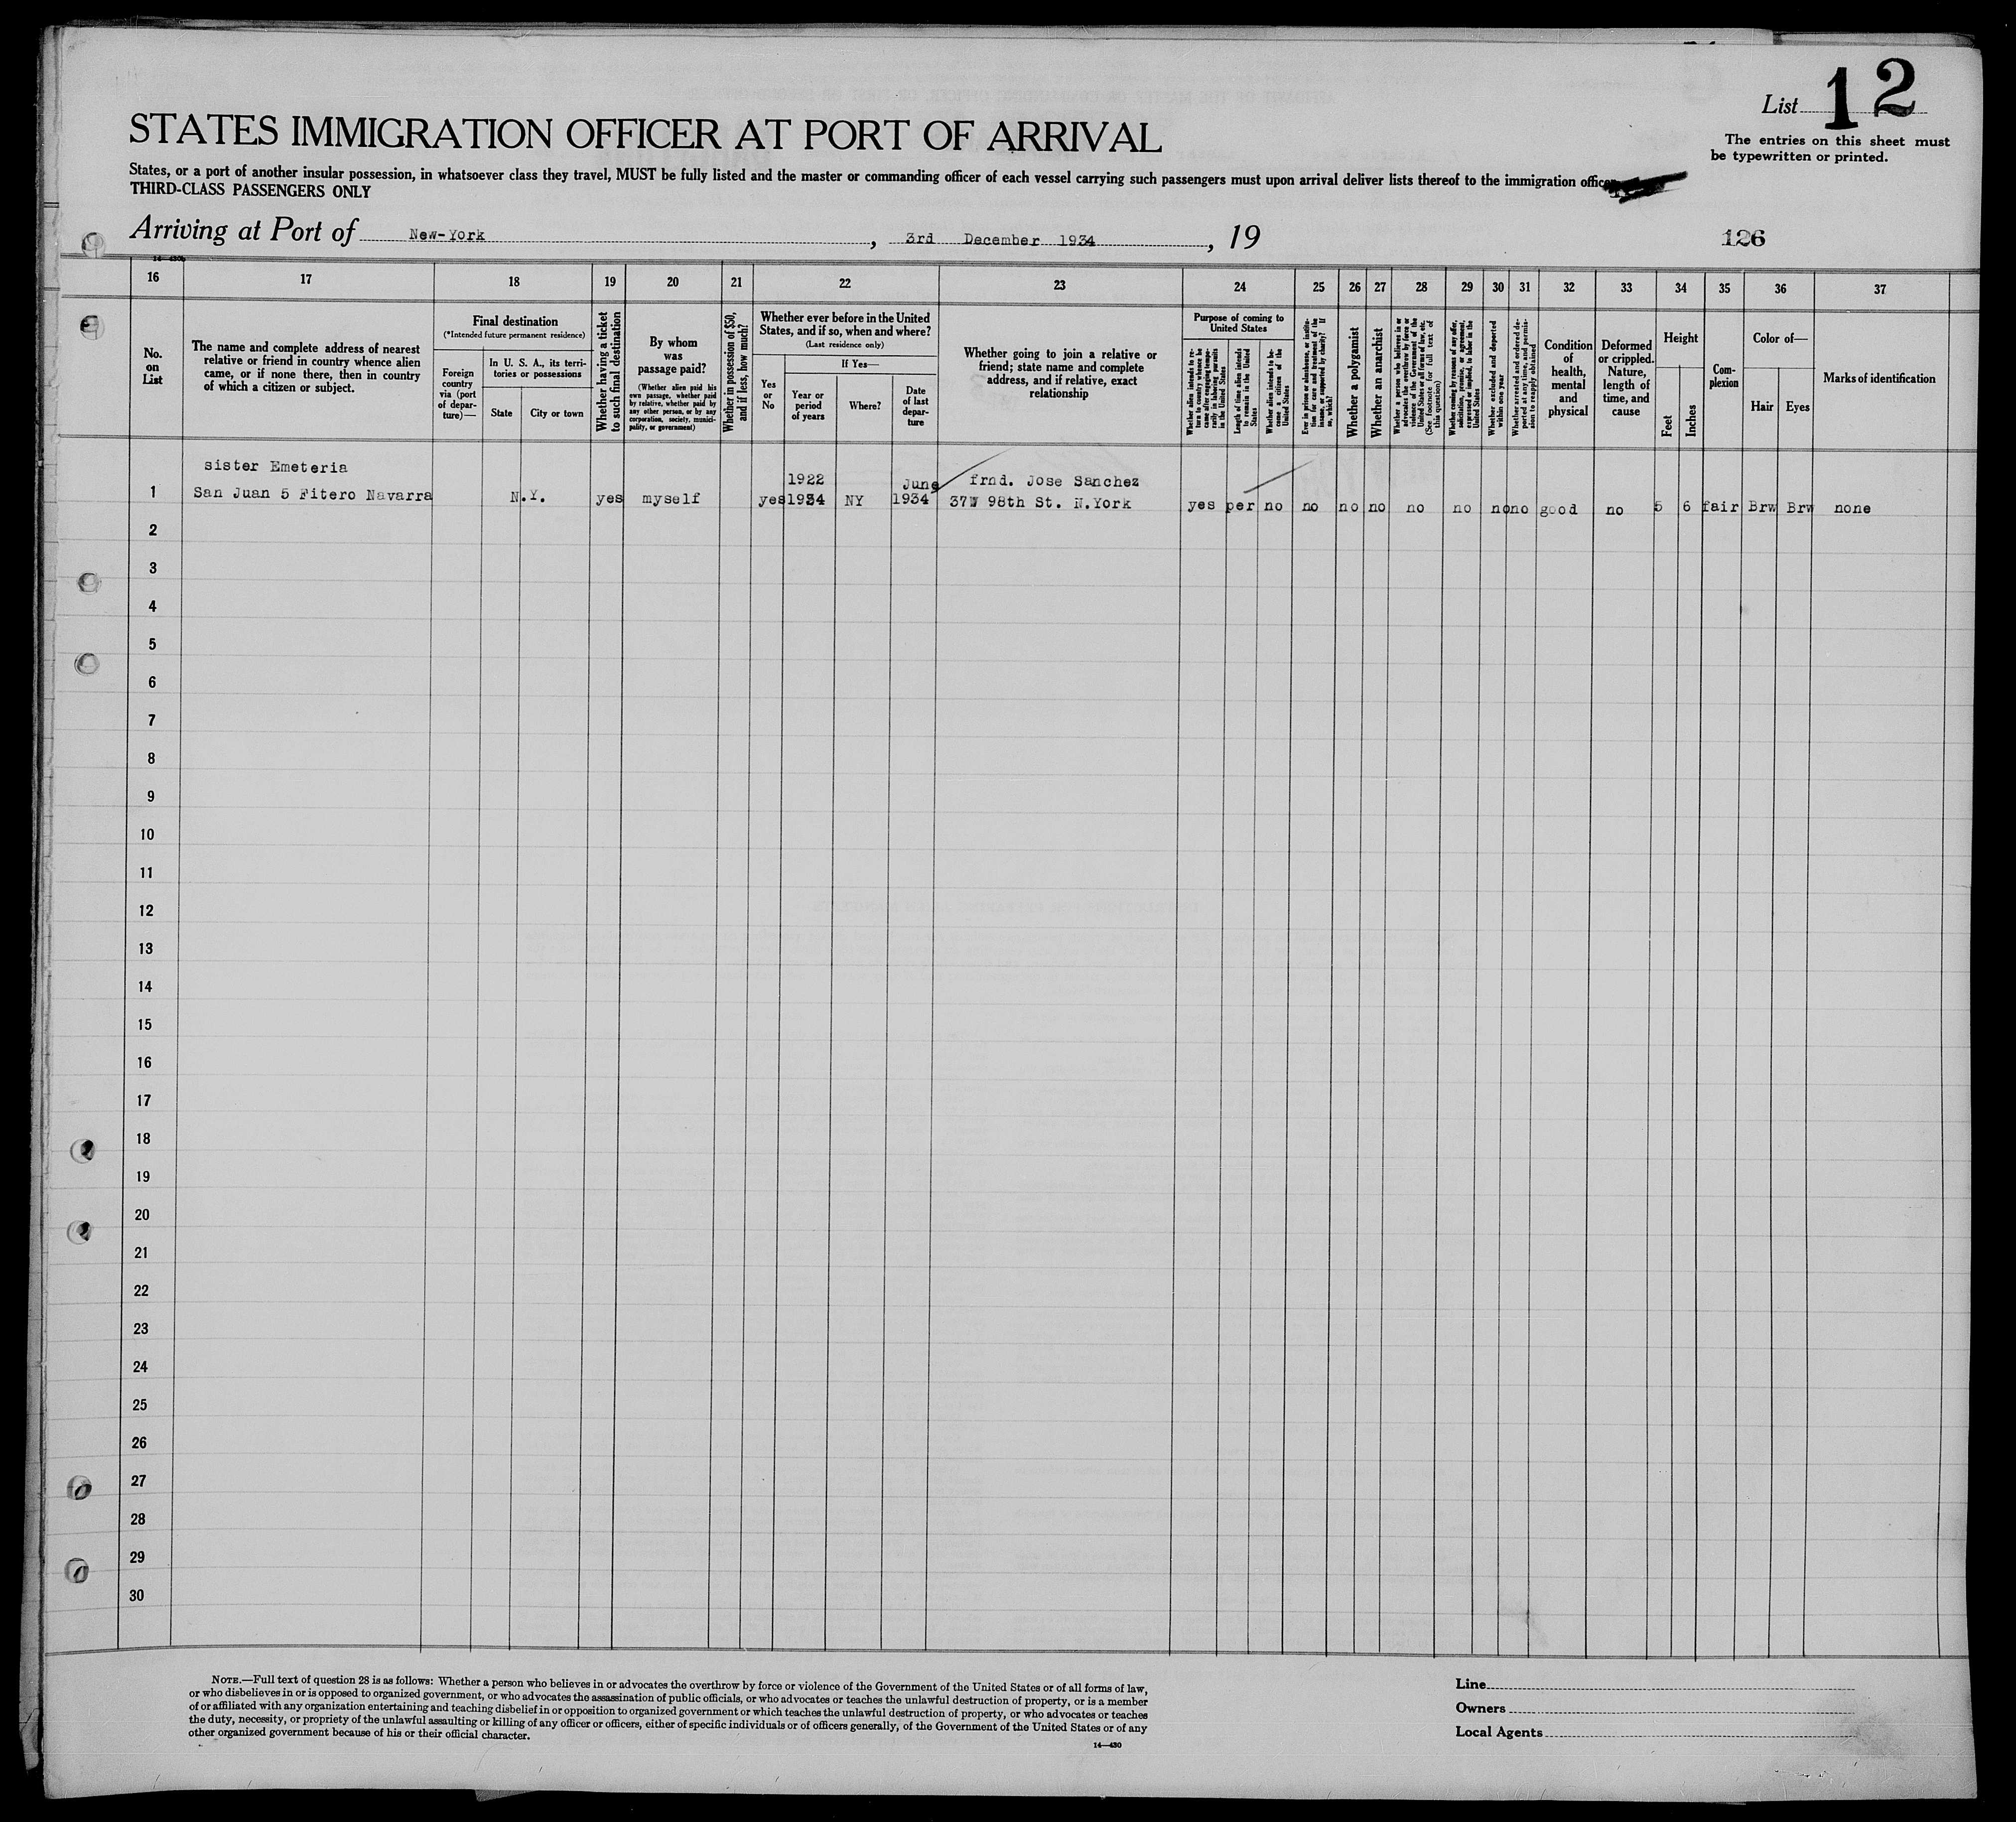 List 12
The entries on this sheet must
be typewritten or printed.
STATES IMMIGRATION OFFICER AT PORT OF ARRIVAL
States, or a port of another insular possession, in whatsoever class they travel, MUST be fully listed and the master or commanding officer of each vessel carrying such passengers must upon arrival deliver lists thereof to the immigration officer
THIRD-CLASS PASSENGERS ONLY
Arriving at Port of New-York, 3rd December 1934, 19
126
14-430b
16 17 18 19 20 21 22 23 24 25 26 27 28 29 30 31 32 33 34 35 36 37
No.
on
List
The name and complete address of nearest
relative or friend in country whence alien
came, or if none there, then in country
of which a citizen or subject.
Final destination
(*Intended future permanent residence)
Foreign
country
via (port
of depar-
ture)—
In U. S. A., its terri-
tories or possessions
State
City or town
Whether having a ticket
to such final destination
By whom
was
passage paid?
(Whether alien paid his
own passage, whether paid
by relative, whether paid by
any other person, or by any
corporation, society, munici-
pality, or government)
Whether in possession of $50,
and if less, how much?
Whether ever before in the United
States, and if so, when and where?
(Last residence only)
Yes
or
No
If Yes—
Year or
period
of years
Where?
Date
of last
depar-
ture
Whether going to join a relative or
friend; state name and complete
address, and if relative, exact
relationship
Purpose of coming to
United States
Whether alien intends to re-
turn to country whence he
came after engaging tempo-
rarily in laboring pursuits
in the United States
Length of time alien intends
to remain in the United
States
Whether alien intends to be-
come a citizen of the
United States
Ever in prison or almshouse, or institu-
tion for care and treatment of the
insane, or supported by charity? If
so, which?
Whether a polygamist
Whether an anarchist
Whether a person who believes in or
advocates the overthrow by force or
violence of the Government of the
United States or all forms of law, etc.
(See footnote for full text of
this question)
Whether coming by reasons of any offer,
solicitation, promise, or agreement,
expressed or implied, to labor in the
United States
Whether excluded and deported
within one year
Whether arrested and ordered de-
ported at any time, and permis-
sion to reapply obtained
Condition
of
health,
mental
and
physical
Deformed
or crippled.
Nature,
length of
time, and
cause
Height
Feet
Inches
Com-
plexion
Color of—
Hair
Eyes
Marks of identification
sister Emeteria 1922 June frnd. Jose Sanchez
1 San Juan 5 Fitero Navarra N.Y. yes myself yes 1934 NY 1934 37W 98th St. N.York yes per no no no no no no no no good no 5 6 fair Brw Brw none
2
3
4
5
6
7
8
9
10
11
12
13
14
15
16
17
18
19
20
21
22
23
24
25
26
27
28
29
30
NOTE.—Full text of question 28 is as follows: Whether a person who believes in or advocates the overthrow by force or violence of the Government of the United States or of all forms of law,
or who disbelieves in or is opposed to organized government, or who advocates the assassination of public officials, or who advocates or teaches the unlawful destruction of property, or is a member
of or affiliated with any organization entertaining and teaching disbelief in or opposition to organized government or which teaches the unlawful destruction of property, or who advocates or teaches
the duty, necessity, or propriety of the unlawful assaulting or killing of any officer or officers, either of specific individuals or of officers generally, of the Government of the United States or of any
other organized government because of his or their official character.
14—430
Line
Owners
Local Agents